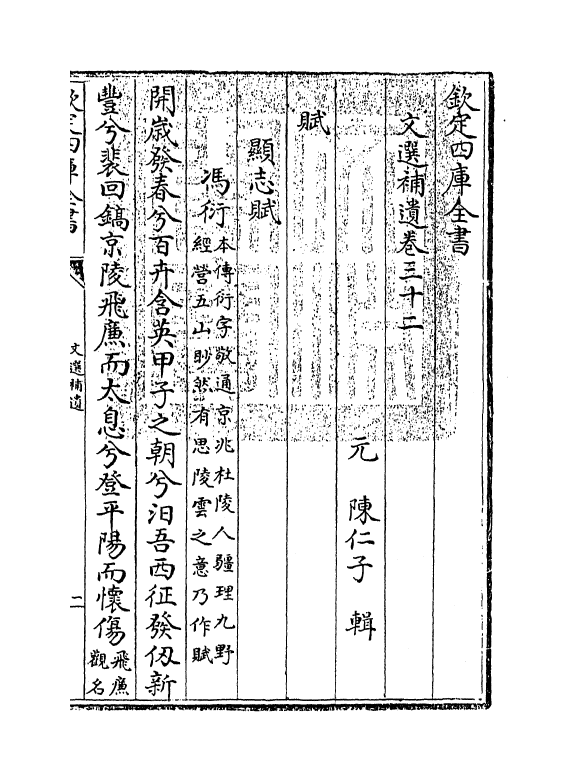 欽定四庫全書
文選補遺卷三十二
元　陳仁子　輯
賦
顯志賦
馮衍本傳衍字敬通京兆杜陵人疆理九野
經營五山眇然有思陵雲之意乃作賦
開歲發春兮百卉含英甲子之朝兮汨吾西征發仭新
豐兮裴回鎬京陵飛廉而太息兮登平陽而懷傷飛廉
觀名
欽定四庫全書
文選補遺
二